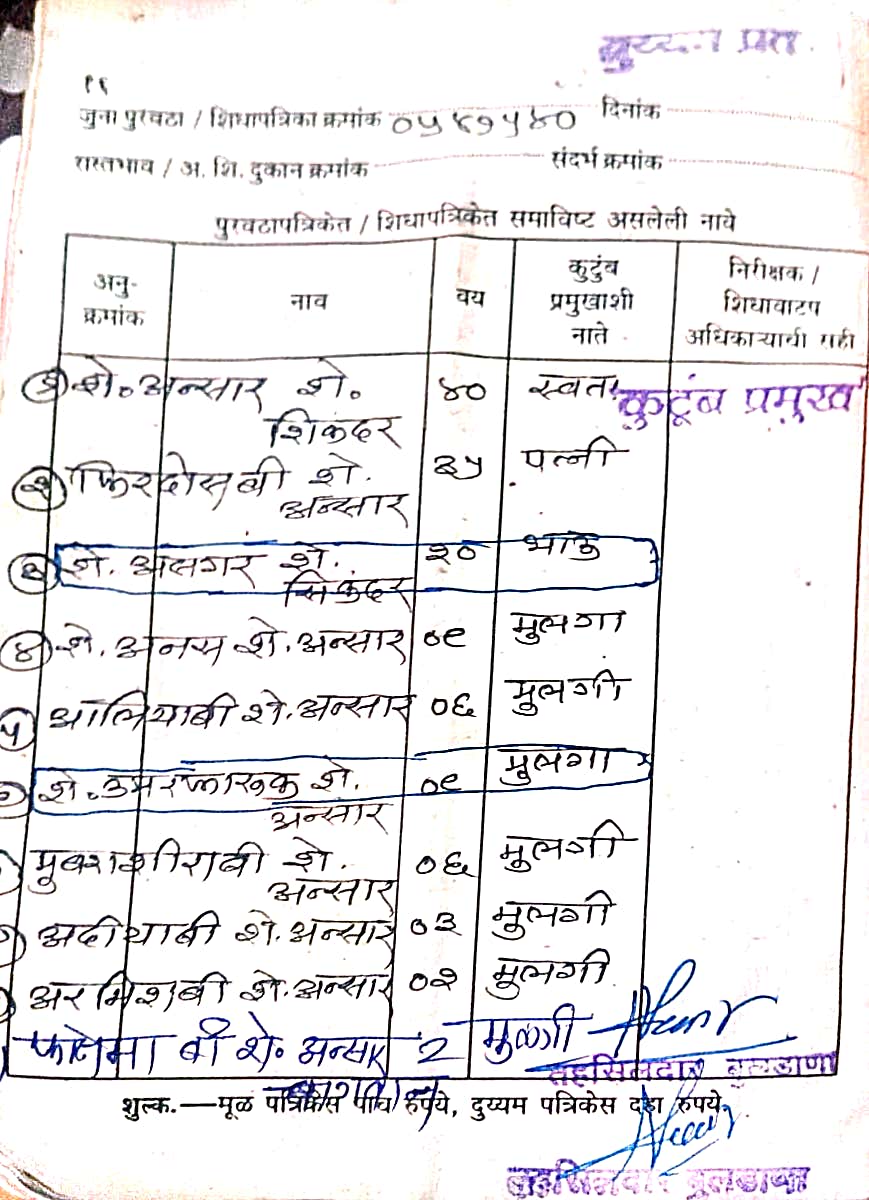 दुय्यम प्रत
१६
जुना पुरवठा / शिधापत्रिका क्रमांक ०५४७५४० दिनांक
रास्तभाव / अ. शि. दुकान क्रमांक संदर्भ क्रमांक
पुरवठापत्रिकेत / शिधापत्रिकेत समाविष्ट असलेली नावे
अनु-क्रमांक नाव वय कुटुंब प्रमुखाशी नाते निरीक्षक / शिधावाटप अधिकाऱ्याची सही
शे. अन्सार शे. ४० स्वतः कुटूंब प्रमुख
शिकंदर
२ फिरदोसबी शे. ३५ पत्नी
अन्सार
३ शे. असगर शे. २० भाऊ
सिकुंदर
४ शे. अनस शे. अन्सार ०९ मुलगा
५ आलियाबी शे. अन्सार ०६ मुलगी
शे. उमरफारुक शे. ०९ मुलगा
अन्सार
मुबशशीराबी शे. ०६ मुलगी
अन्सार
अदीयाबी शे. अन्सार ०३ मुलगी
अरमिशबी शे. अन्सार ०२ मुलगी
फातेमा बी शे. अन्सार 2 मुळगी
तहसिलदार बुलडाणा
शुल्क.—मूळ पत्रिकेस पाच रुपये, दुय्यम पत्रिकेस दहा रुपये.
तहसिलदार बुलडाणा